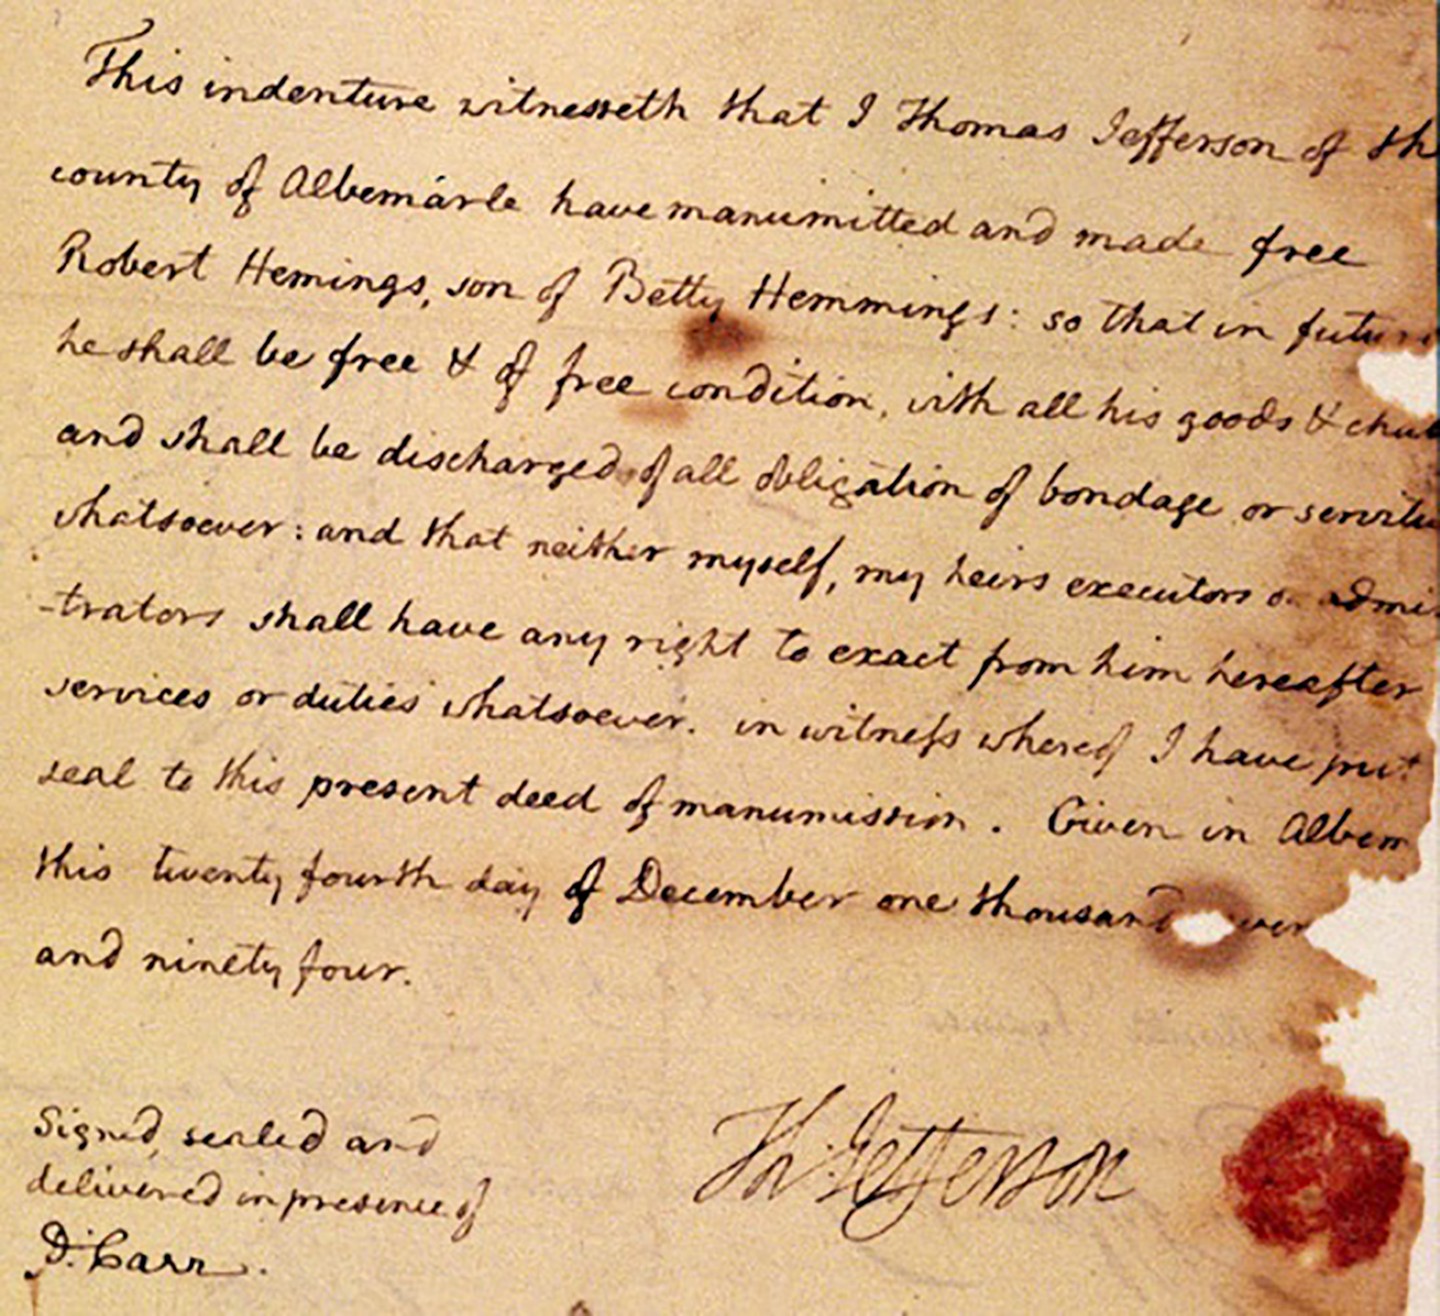 This indenture witnesseth that I Thomas Jefferson of th
county of Albemarle have manumitted and made free
Robert Hemings, son of Betty Hemmings: so that in future
he shall be free & of free condition, with all his goods & chat
and shall be discharged of all obligation of bondage or servitu
whatsoever: and that neither myself, my heirs executors or admi
-trators shall have any right to exact from him hereafter
services or duties whatsoever. in witness whereof I have put
seal to this present deed of manumission. Given in Albem
this twenty fourth day of December one thousand ven
and ninety four.
Signed, sealed and
delivered in presence of
D. Carr.
Th: Jefferson